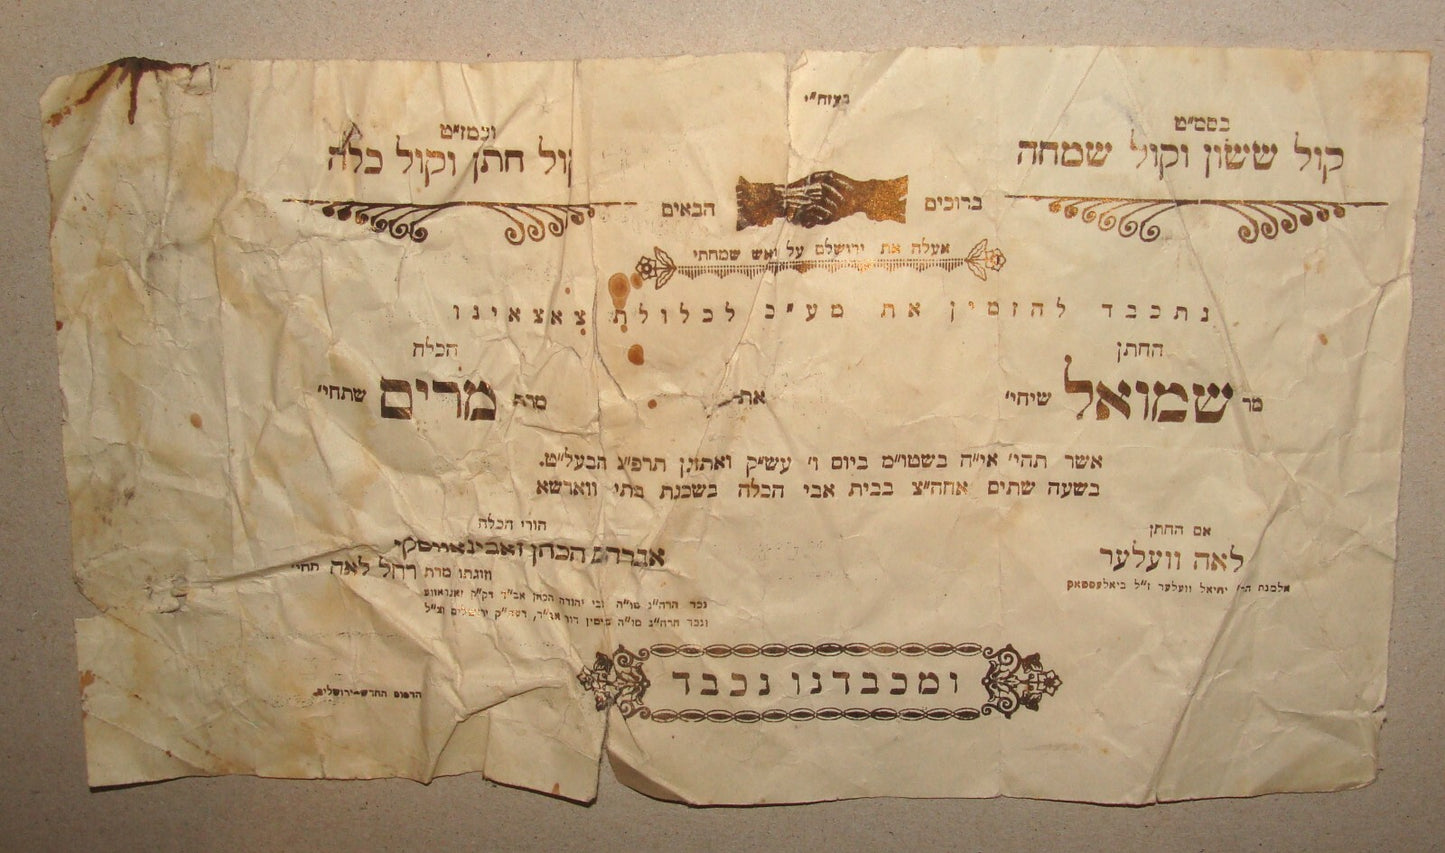 בעזהי"י
בסמ"ט
קול ששון וקול שמחה
ובמז"ט
קול חתן וקול כלה
ברוכים הבאים
אעלה את ירושלם על ראש שמחתי
נתכבד להזמין את מע"כ לכלולת צאצאינו
החתן
מר שמואל שיחי'
את
הכלה
מרת מרים שתחי'
אשר תהי' אי"ה בשטו"מ ביום ו' עש"ק ואתחנן תרפ"ג הבעל"ט.
בשעה שתים אחה"צ בבית אבי הכלה בשכנת בתי ווארשא
אם החתן
לאה וועלער
אלמנת הר' יחיאל וועלער ז"ל ביאלעסטאק
הורי הכלה
אברהם הכהן
וזוגתו מרת רחל לאה תחי'
נכד הרה"ג מו"ה יהודה הכהן אב"ד דק"ק
ונכד הרה"ג מו"ה דק"ק ירושלים זצ"ל
ומכבדנו נכבד
הדפוס החדש–ירושלים.